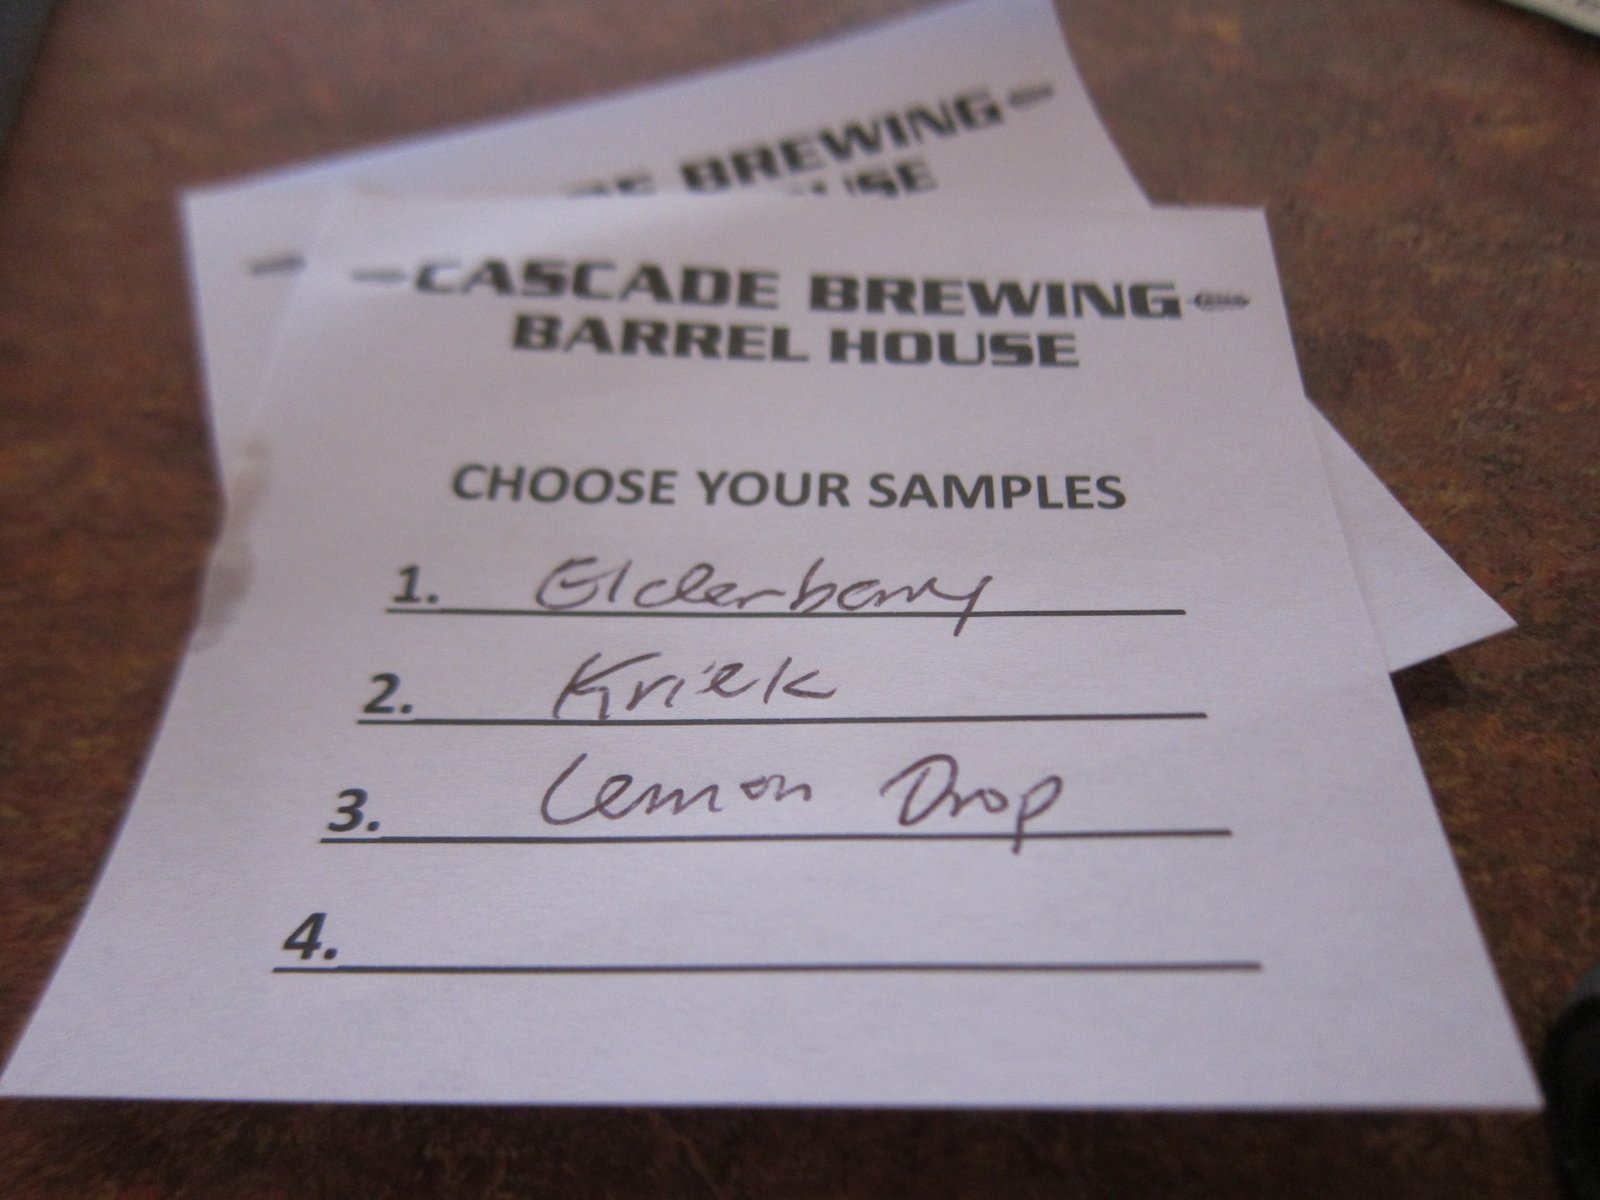 BREWING
CASCADE BREWING
BARREL HOUSE
CHOOSE YOUR SAMPLES
1. Elderberry
2. Kriek
3. Lemon Drop
4.